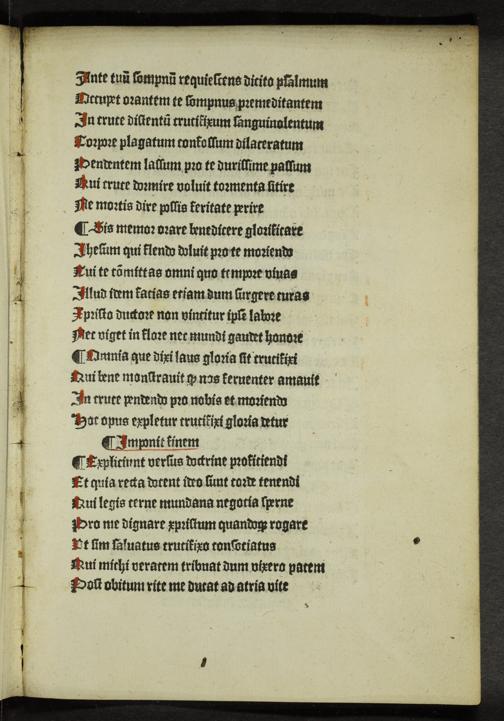 Ante tuū sompnū requiescens dicito psalmum
Occupet orantem te sompnus premeditantem
In cruce distentū crucifixum sanguinolentum
Corpore plagatum confossum dilaceratum
Pendentem lassum pro te durissime passum
Qui cruce dormire voluit tormenta sitire
Ne mortis dire possis feritate perire
¶ Sis memor orare benedicere glorificare
Jhesum qui flendo doluit pro te moriendo
Cui te cōmittas omni quo tempore viuas
Illud idem facias etiam dum surgere curas
Xpristo ductore non vincitur ipse labore
Nec viget in flore nec mundi gaudet honore
¶ Omnia que dixi laus gloria sit crucifixi
Qui bene monstrauit ꝙ nos feruenter amauit
In cruce pendendo pro nobis et moriendo
Hoc opus expletur crucifixi gloria detur
¶ Imponit finem
¶ Expliciunt versus doctrine proficiendi
Et quia recta docent ideo sunt corde tenendi
Qui legis cerne mundana negocia sperne
Pro me dignare xpristum quandoqꝫ rogare
Vt sim saluatus crucifixo consociatus
Qui michi veracem tribuat dum vixero pacem
Post obitum rite me ducat ad atria vite